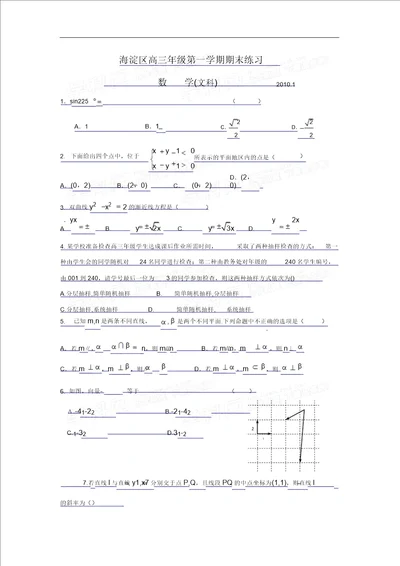 海淀区高三年级第一学期期末练习
数 学(文科) 2010.1
1、sin225 °= ( )
A. 1 B. 1 C. √2 D. -√2
2 2
2. 下面给出四个点中,位于 { x + y -1 < 0 所表示的平面区域内的点是( )
x - y + 1 > 0
A.(0,2) B.(2,0) C. (0, 2) D.(2,
0)
3. 双曲线 y² -x² = 2 的渐近线方程是( )
A. yx = ± B. y= ± 2x C. y= ± 3x D. y = ± 2x
4.某学校准备检查高三年级学生完成课后作业所需时间, 采取了两种抽样检查的方式: 第一
种由学生会的同学随机对 24名同学进行检查;第二种由教务处对年级的 240名学生编号,
由001到240,请学号最后一位为 3的同学参加检查,则这两种抽样方式依次为()
A.分层抽样,简单随机抽样 B. 简单随机抽样,分层抽样
C.分层抽样,系统抽样 D. 简单随机抽样, 系统抽样
5. 已知m,n是两条不同直线, α,β是两个不同平面 下列命题中不正确的选项是( )
6. 如图,向量 等于 ( )
A. -41-22 B. 21-42
C. 1-32 D.31-2
7.若直线l与直线 y1,x7 分别交于点 P,Q,且线段PQ的中点坐标为(1,1),则直线l
的斜率为()